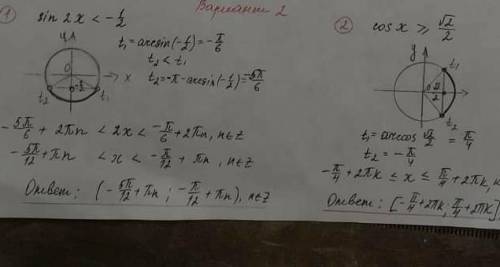 Вариант 2
① sin 2x < -1/2
t₁ = arcsin(-1/2) = -π/6
t₂ < t₁
t₂ = -π - arcsin(-1/2) = -5π/6
y
0
x
-1/2
t₂
t₁
-5π/6 + 2πn < 2x < -π/6 + 2πn, n∈Z
-5π/12 + πn < x < -π/12 + πn, n∈Z
Ответ: (-5π/12 + πn ; -π/12 + πn), n∈Z
② cos x ⩾ √2/2
y
t₁
0
√2/2
t₂
t₁ = arccos √2/2 = π/4
t₂ = -π/4
-π/4 + 2πk ⩽ x ⩽ π/4 + 2πk, k
Ответ: [-π/4 + 2πk; π/4 + 2πk]